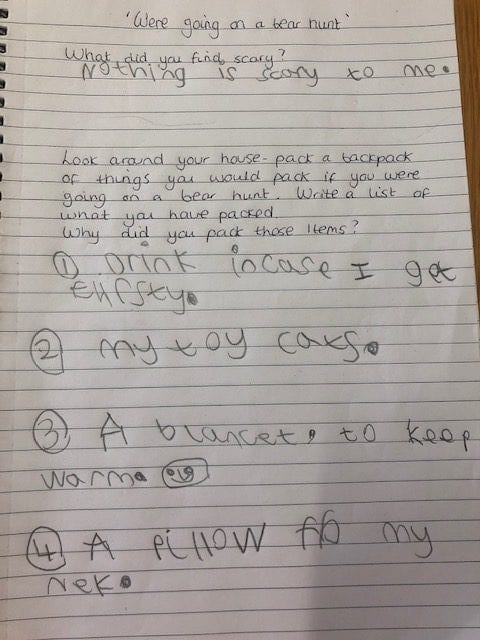 'Were going on a bear hunt'
What did you find scary?
Nothing is scary to me.
Look around your house - pack a backpack
of things you would pack if you were
going on a bear hunt. Write a list of
what you have packed.
Why did you pack those items?
① Drink incase I get
thirsty.
② my toy cars.
③ A blancet, to keep
warm.
④ A pillow for my
nek.